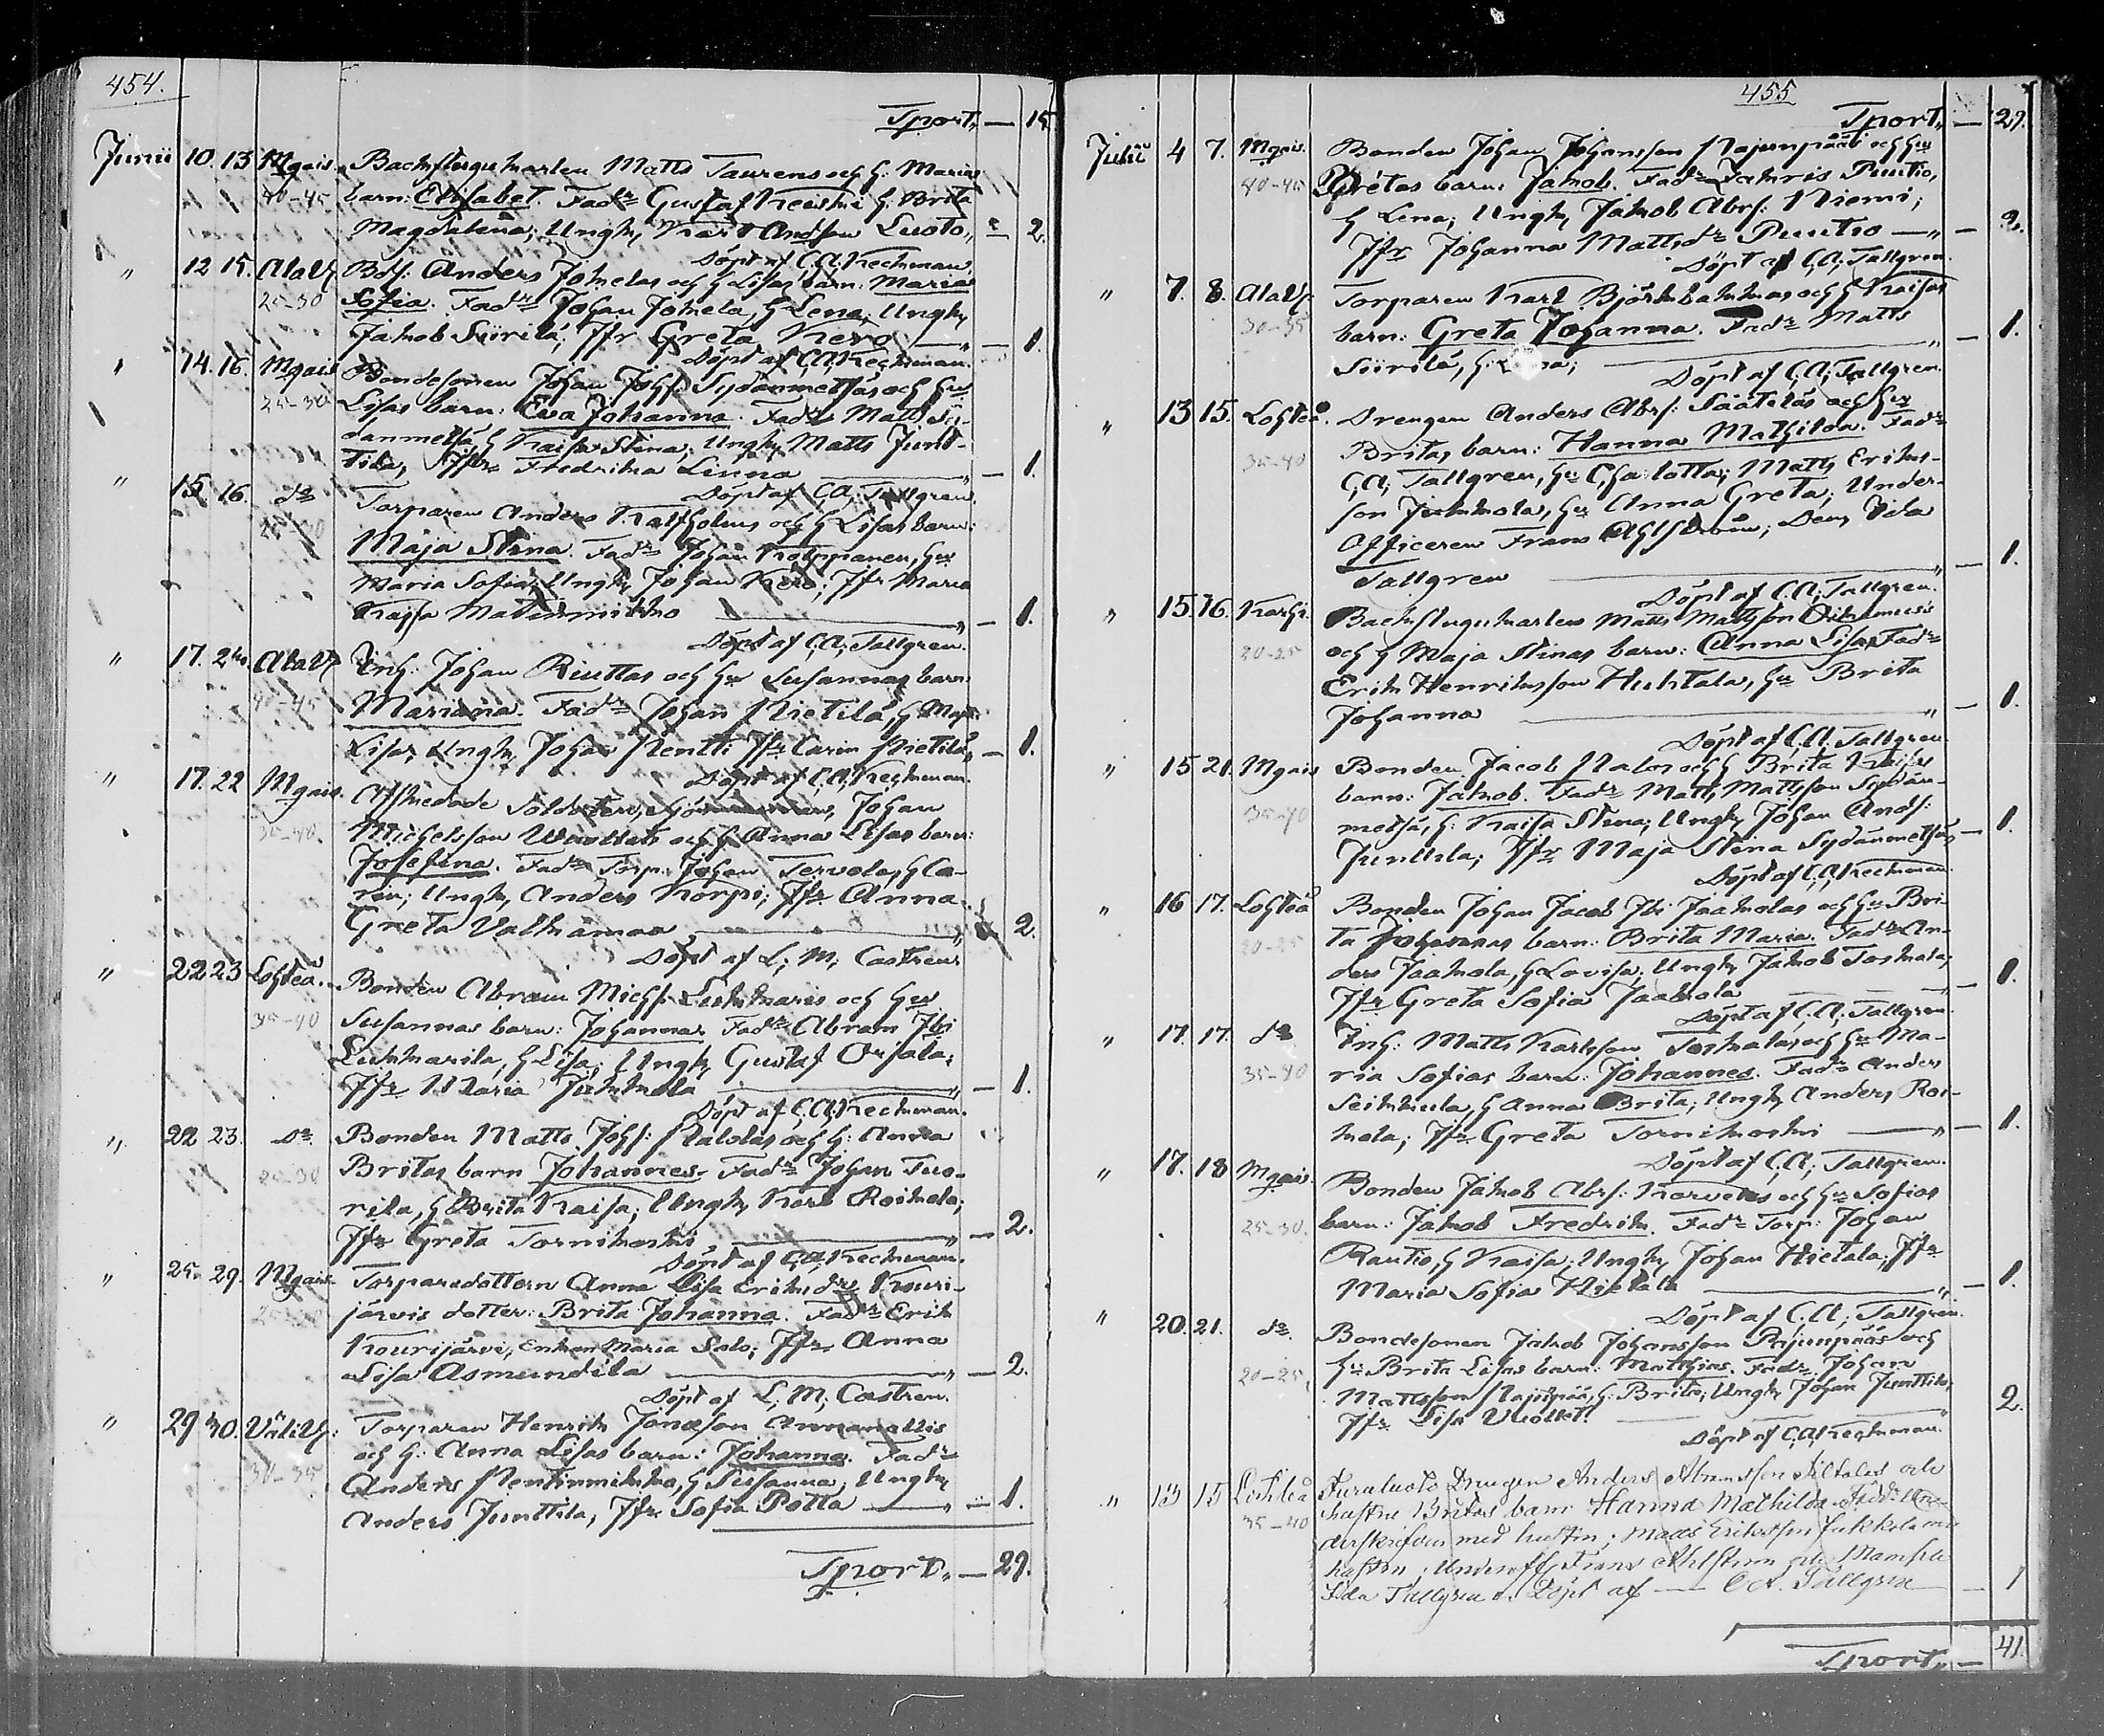 454.
Tport. — 15
Junii 10. 13 Mgais. Backstugukarlen Matts Taurens och h. Marias
40-45 barn: Elisabet. Fadr Gustaf h. Brita
Magdalena; Ungk, Karl Andsson Luoto „ 2.
Döpt af C.A. Keckman.
" 12 15. Alav. Bdsf. Anders Jokelas och h Lisas barn: Maria
25-30 Sofia. Fadr Johan Jokela, h Lena; Ungk,
Jakob Siirilä; Jfr Greta Kero — „ — 1.
Döpt af C.A. Keckman.
" 14. 16. Mgais Bondesonen Johan Johsf. Sydänmetsäs och hus
25-30 Lisas barn: Eva Johanna. Fadr Matts Sy-
dänmetsä, h Kaisa Stina; Ungk, Matts Junt-
tila, Jfr Fredrika Linna — „ — 1.
Döpt af C.A. Tallgren.
" 15 16. do Torparen Anders Kalfholms och h Lisas barn:
Maja Stina. Fadr Johan Kohpanen, hus
Maria Sofia; Ungk, Johan Kero; Jfr Maria
Kajsa — „ — 1.
Döpt af C.A. Tallgren.
" 17. Alav. Inh: Johan Riuttas och hu Susannas barn
40-45 Mariana. Fadr Johan Nietilä, h Maja
Lisa; Ungk, Johan Pentti Jfr Carin Nietilä „ — 1.
Döpt af C.A. Keckman.
" 17. 22 Mgais. Afskedade Soldaten, Johan
35-40. Michelsson Wuollets och h Anna Lisas barn:
Josefina. Fadr Torp. Johan Tervola, h Ca-
rin; Ungk, Anders Korpi; Jfr Anna
Greta — „ 2.
Döpt af L. M. Castren.
" 22 23 Lohteå. Bonden Abram Michsf. Lukkaris och hus
35-40 Susannas barn: Johanna. Fadr Abram Jbi
Lukkarila, h Lisa; Ungk, Gustaf Orjala;
Jfr Maria Jukkola — „ — 1.
Döpt af C.A. Keckman.
" 22 23. Do. Bonden Matts Johsf: och h: Anna
25-30 Britas barn Johannes. Fadr Johan Tuo-
rila, h Brita Kaisa; Ungk, Karl Roikola;
Jfr Greta Tornikoski — „ — 2.
Döpt af C.A. Keckman.
" 25. 29. Mgais Torparedottern Anna Lisa Eriksdr Kouri-
järvis dotter: Brita Johanna. Fadr Erik
Kourijärvi, Enkan Maria Salo; Jfr Anna
Lisa Asmundila — „ — 2.
Döpt af L. M. Castren.
" 29 30. Välivh: Torparen Henrik Jonasson
30-35 och h: Anna Lisas barn: Johanna. Fadr
Anders Pentinmikko, h Susanna; Ungk,
Anders Junttila, Jfr Sofia Potta — „ — 1.
Tport. — 29.
455
Tport. — 29.
Julii 4 7. Mgais. Bonden Johan Johansson Rajunpääs och hus
40-45 Gretas barn: Jakob. Fadr Puutio,
h Lena; Ungk, Jakob Abrsf: Niemi;
Jfr Johanna Mattsdr Puutio — „ — 2.
Döpt af C.A. Tallgren.
" 7. 8. Alav. Torparen Karl Björkbackas och h Kaisas
30-35 barn: Greta Johanna. Fadr Matts
Siirilä, h. — „ — 1.
Döpt af C.A. Tallgren.
" 13 15. Lohteå. Drengen Anders Abrsf: Sääteläs och hus
35-40 Britas barn: Hanna Mathilda. Fadr
C.A. Tallgren, hu Charlotta; Matts Eriks-
son Jukkola, hu Anna Greta; Under-
Officeren Frans Ahlström; Dem. Ida
Tallgren — „ — 1.
Döpt af C.A. Tallgren.
" 15. 16. Karhi. Backstugukarlens Matts Mattsson
20-25 och h Maja Stinas barn: Anna Lisa. Fadr
Erik Henriksson Huhtala, hu Brita
Johanna — „ — 1.
Döpt af C.A. Tallgren.
" 15 21. Mgais Bonden Jacob och h Brita Kaisas
35-40 barn: Jakob. Fadr Matts Mattsson Sydän-
metsä, h: Kaisa Stina; Ungk, Johan Andsf:
Junttila; Jfr Maja Stina Sydänmetsä „ — 1.
Döpt af C.A. Keckman.
" 16 17. Lohteå Bonden Johan Jacob Jbi Jaakolas och hu Bri-
20-25 ta Johannas barn: Brita Maria. Fadr An-
ders Jaakola, h Lovisa; Ungk, Jakob Toskala;
Jfr Greta Sofia Jaakola — „ — 1.
Döpt af C.A. Tallgren.
" 17. 17. do Inh: Matts Karlsson Toskalas och hu Ma-
35-40 ria Sofias barn: Johannes. Fadr Anders
Seikkula, h Anna Brita; Ungk, Anders Roi-
kola; Jfr Greta Tornikoski — „ — 1.
Döpt af C.A. Tallgren.
" 17. 18 Mgais. Bonden Jakob Abrsf: Karvelas och hu Sofias
25-30. barn: Jakob Fredrik. Fadr Torp: Johan
Rautio, h Kaisa; Ungk, Johan Hietala; Jfr
Maria Sofia Hietala — „ — 1.
Döpt af C.A. Tallgren.
" 20. 21. do. Bondesonen Jakob Johansson Rajunpääs och
20-25 hu Brita Lisas barn: Mathias. Fadr Johan
Mattsson Rajunpää, h: Brita; Ungk, Johan Junttila,
Jfr Lisa Vuollet. „ 2.
Döpt af C.A. Keckman.
" 13 15 Lohteå Drengen Anders Abramsson och
35-40 hustru Britas barn Hanna Mathilda. Fadr: Un-
derskrifven med hustru; Matts Eriksson Jukkola m
hustru; Underoff. Frans Ahlström och Mamsell
Ida Tallgren. Döpt af — C.A. Tallgren — 1
Tport. — 41.